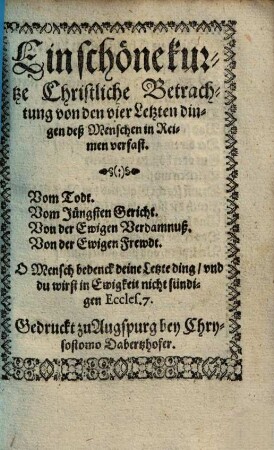 Ein schöne kur-
tze Christliche Betrach-
tung von den vier Letzten din-
gen deß Menschen in Rei-
men verfast.
Vom Todt.
Vom Jüngsten Gericht.
Von der Ewigen Verdamnuß.
Von der Ewigen Frewdt.
O Mensch bedenck deine Letzte ding / vnd
du wirst in Ewigkeit nicht sündi-
gen Eccles. 7.
Gedruckt zu Augspurg bey Chry-
sostomo Dabertzhofer.